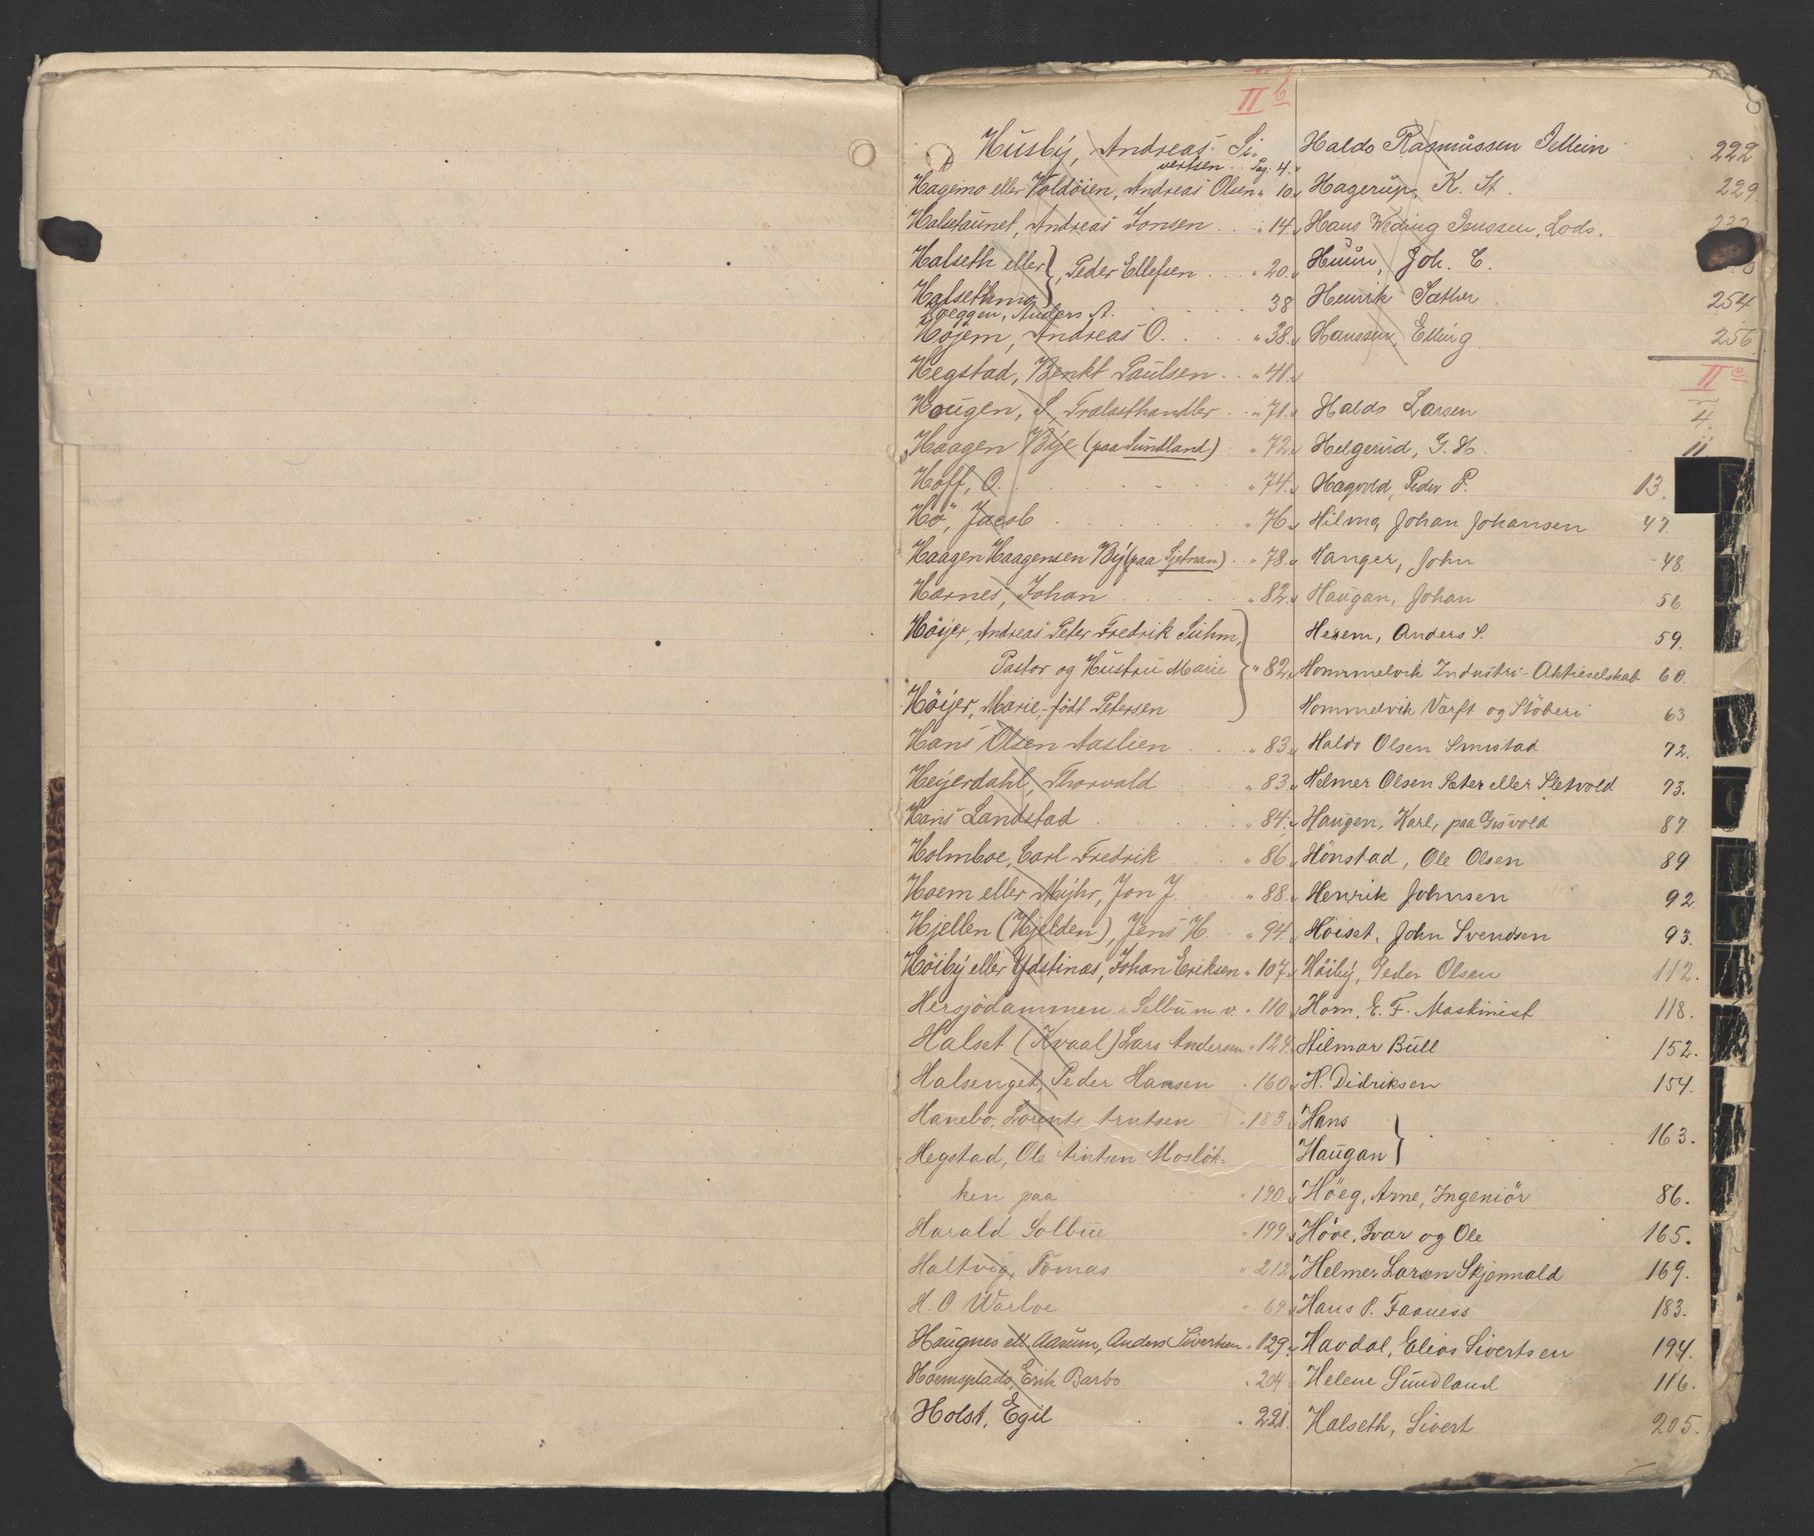 II b
8
Husby, Andreas Si-
vertsen . . Pag. 4.
Hagemo eller Voldöien, Andreas Olsen " 10.
Halsetaunet, Andreas Jonsen . . . " 14.
Halseth eller
Halsethmo } , Peder Ellefsen . . . " 20.
Hoeggen, Anders A. . . . 38
Højem, Andreas O. . . . " 38.
Hegstad, Benkt Paulsen . . " 41.
Hougen, S. Trælasthandler . . " 71.
Haagen Bye (paa Sundland) . " 72.
Hoff, O. . . . " 74.
Hø, Jacob . . . " 76.
Haagen Haagensen By (paa Sjetnan) . " 78.
Harnes, Johan . . . " 82.
Höijer, Andreas Peter Fredrik Suhm,
Pastor og Hustru Marie } " 82.
Höijer, Marie, født Petersen
Hans Olsen Aaslien . . . " 83.
Heyerdahl, Thorvald . . " 83.
Hans Landstad . . . " 84.
Holmboe, Carl Fredrik . . " 86.
Hoem eller Myhr, Jon J. . " 88.
Hjellen (Hjelden), Jens H. . " 94.
Höiby eller Ydstinas, Johan Eriksen " 107.
Hersjödammen i Selbu m. v. " 110.
Halset (Kvaal) Lars Andersen " 124.
Halsenget, Peder Hansen " 160.
Hanebo, Lorents Arntsen " 183.
Hegstad, Ole Arntsen Mosløk-
ken paa " 190.
Harald Solbue " 199.
Haltvig, Tomas " 212.
H. O. Warloe " 69.
Haugnes ell. Aasum, Anders Sivertsen " 129.
Hoemsplads, Erik Barbo " 204
Holst, Egil . " 221.
Haldo Rasmussen Tellein . 222
Hagerup, K. St. 229.
Hans Weding Jenssen, Lods. 232
Huun, Joh. C.
Henrik Sæther . 254
Hanssen, Elling . 256.
II c
Haldo Larsen 4.
Helgerud, G. H. 11
Hagvold, Peder P. 13.
Hilmo, Johan Johansen 47.
Hanger, John 48.
Haugan, Johan 56.
Herem, Anders S. 59.
Hommelvik Industri-Aktieselskab 60.
Hommelvik Værft og Støberi 63
Haldo Olsen Smistad 72.
Helmer Olsen Sæter eller Sletvold 73.
Haugen, Karl, paa Gisvold 87
Hönstad, Ole Olsen 89
Henrik Johnsen 92.
Höiset, John Svendsen 93.
Höiby, Peder Olsen 112.
Horn, E. F. Maskinist 118.
Hilmar Bull 152.
H. Didriksen 154.
Hans
Haugan } . . 163.
Höeg, Arne, Ingeniör 86.
Höve, Ivar og Ole 165.
Helmer Larsen Skjennald 169.
Hans P. Faaness 183.
Havdal, Elias Sivertsen 194.
Helene Sundland 116.
Halseth, Sivert 205.